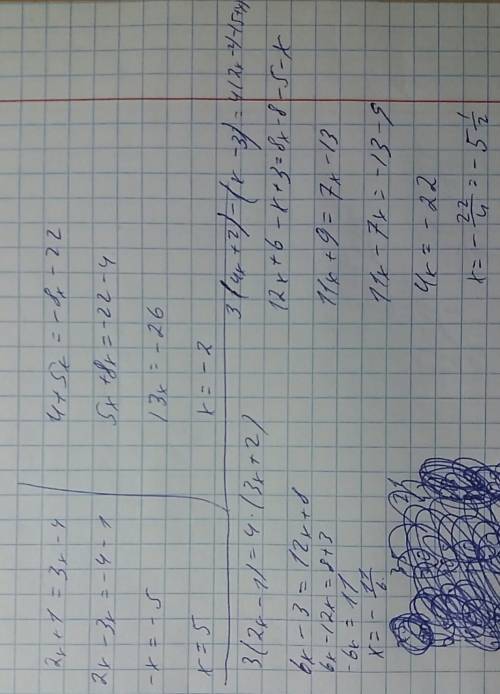 2x + 1 = 3x - 4
2x - 3x = -4 - 1
-x = -5
x = 5
4 + 5x = -8x - 22
5x + 8x = -22 - 4
13x = -26
x = -2
3(2x - 1) = 4 · (3x + 2)
6x - 3 = 12x + 8
6x - 12x = 8 + 3
-6x = 11
x = - 11/6
3(4x + 2) - (x - 3) = 4(2x -
12x + 6 - x + 3 = 8x - 8 - 5 - x
11x + 9 = 7x - 13
11x - 7x = -13 - 9
4x = -22
x = - 22/4 = -5 1/2